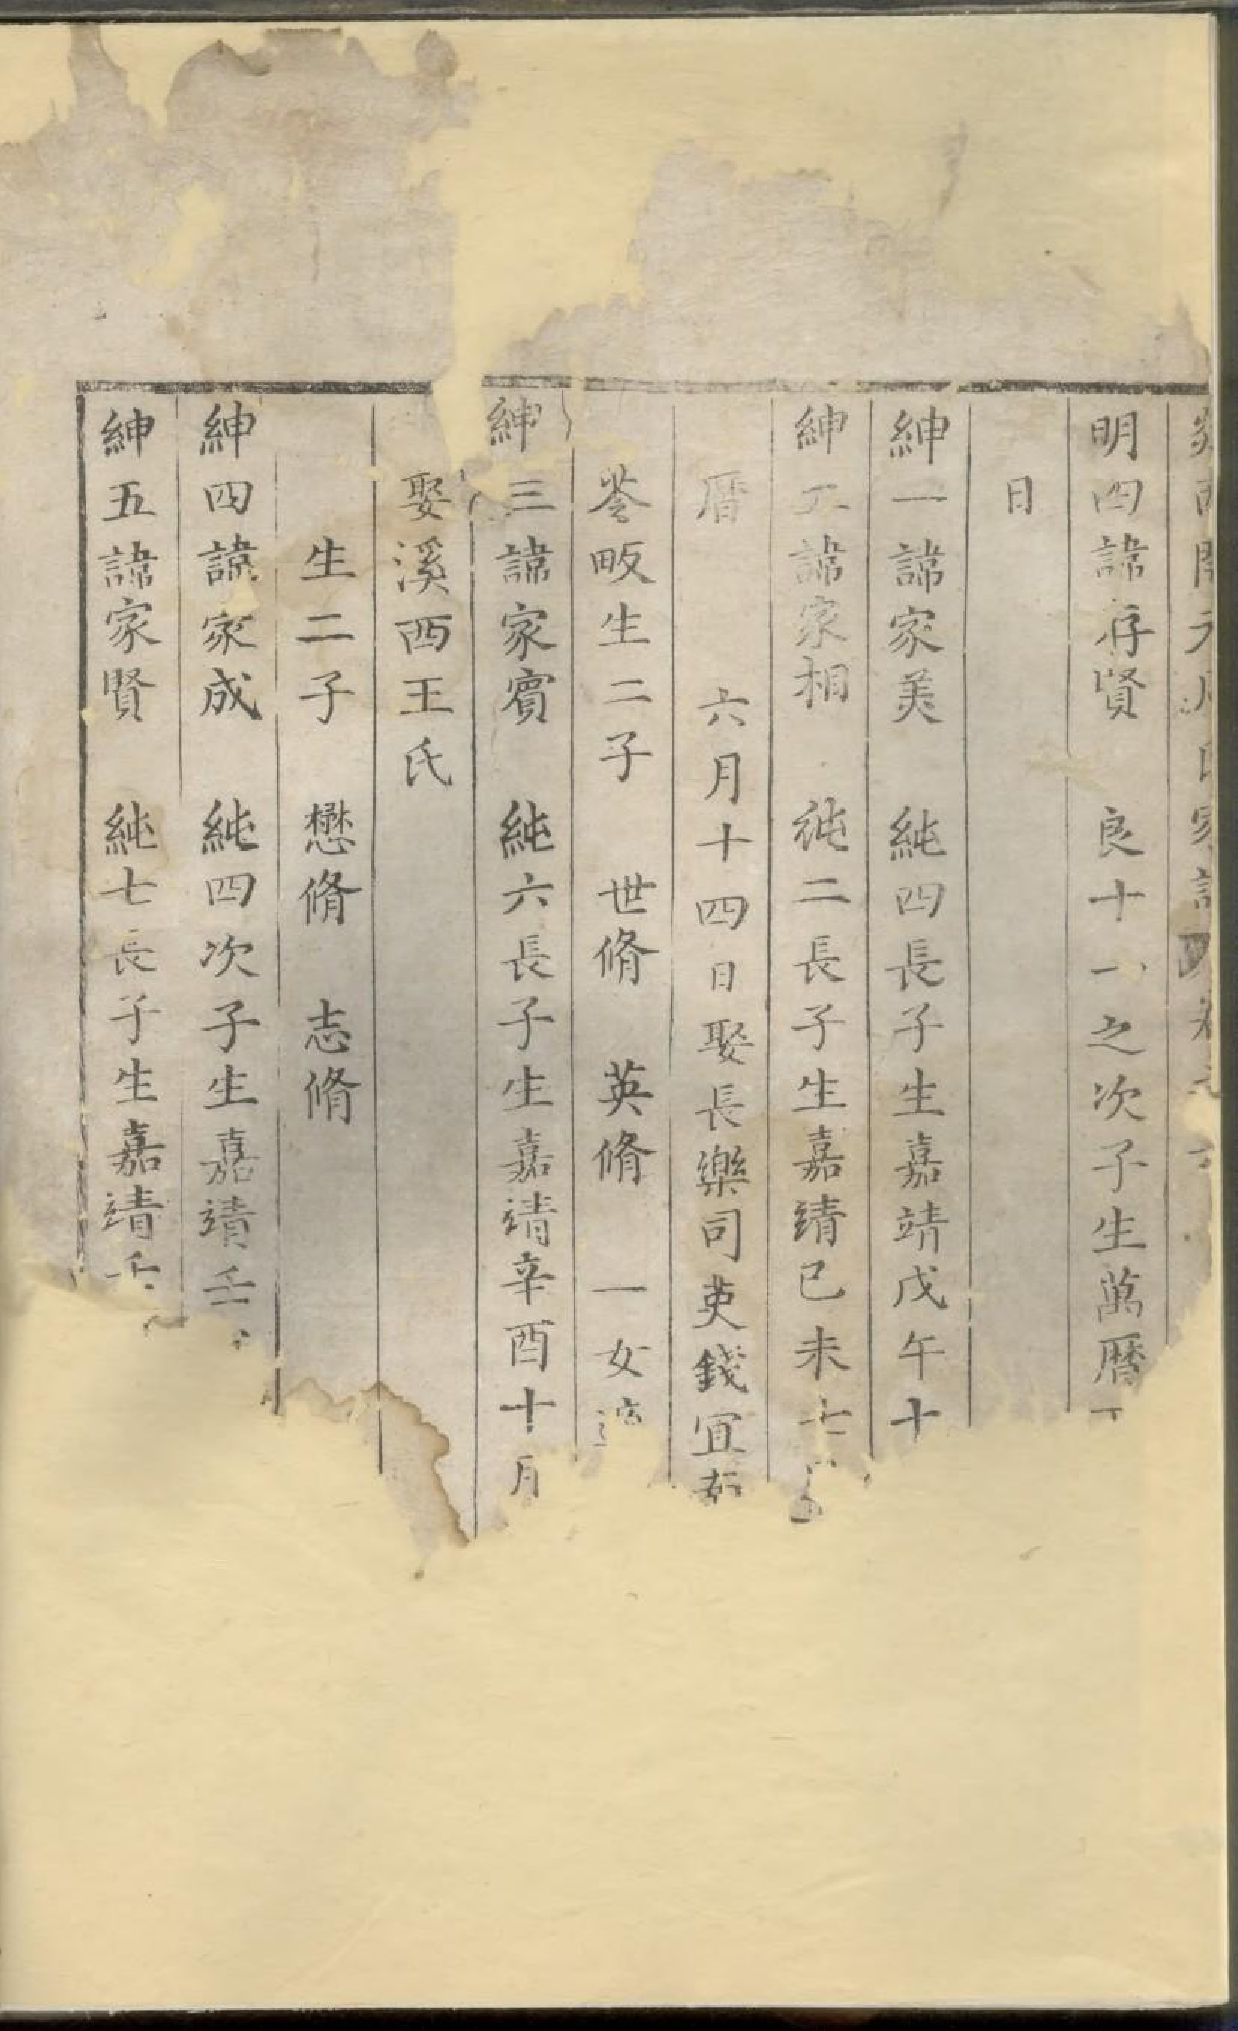 明四諱存賢 良十一之次子生萬曆
日
紳一諱家美 純四長子生嘉靖戊午十
紳二諱家相 純二長子生嘉靖己未十
曆 六月十四日娶長樂司吏錢宜
苓畈生二子 世脩 英脩 一女適
紳三諱家賓 純六長子生嘉靖辛酉十月
娶溪西王氏
生二子 懋脩 志脩
紳四諱家成 純四次子生嘉靖壬
紳五諱家賢 純七長子生嘉靖壬